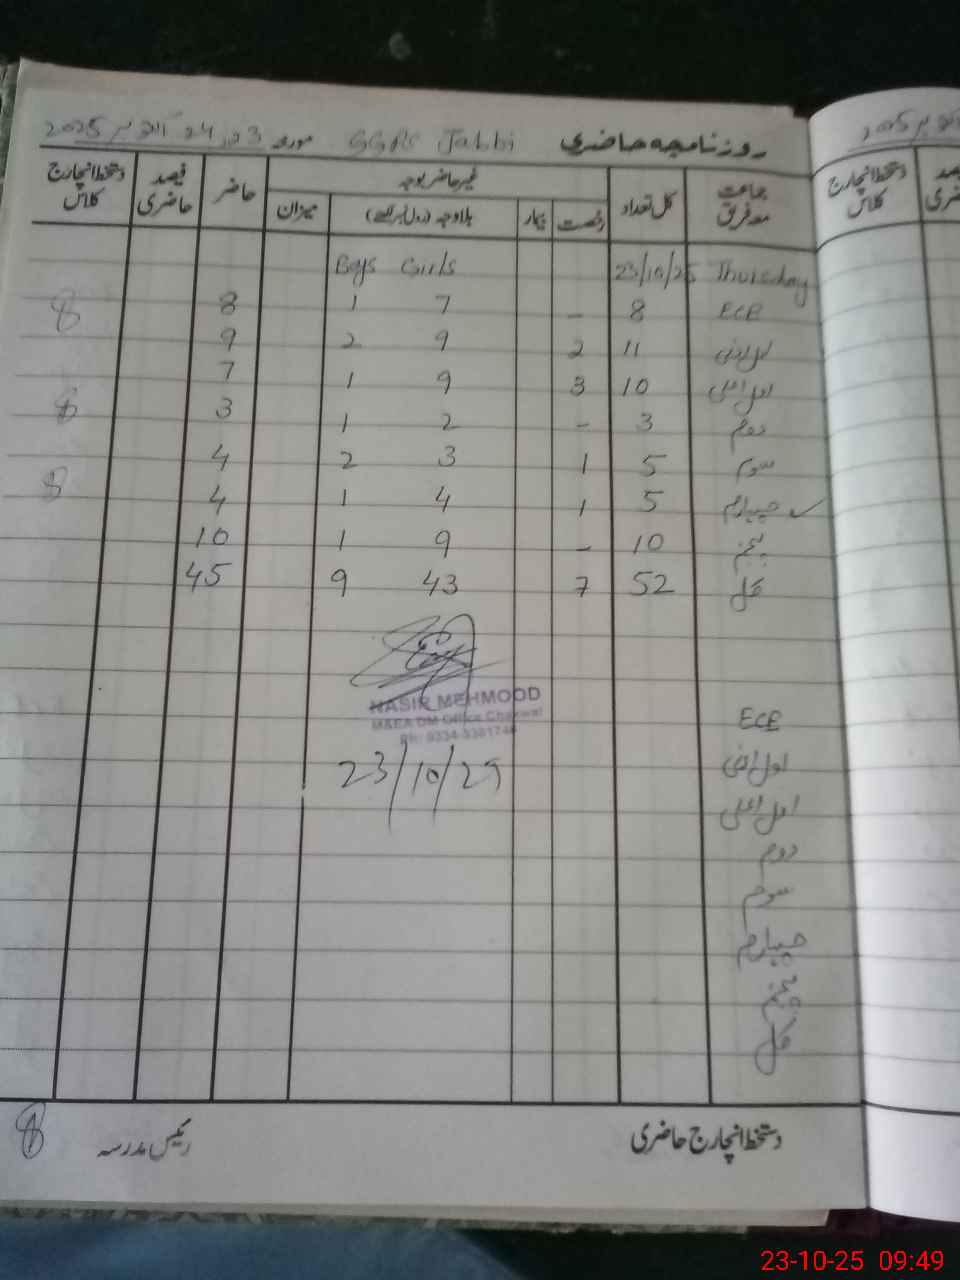 روزنامچہ حاضری GGPS Jabbi مورخہ 23, 24 اکتوبر 2025
جماعت معہ فریق کل تعداد غیر حاضر بوجہ حاضر فیصد حاضری دستخط انچارج کلاس
رخصت بیمار بلاوجہ (رول نمبر لکھیے) میزان
Thursday 23/10/25 Girls Boys
ECE 8 - 7 1 8
اول ادنیٰ 11 2 9 2 9
اول اعلیٰ 10 3 9 1 7
دوم 3 - 2 1 3
سوم 5 1 3 2 4
چہارم 5 1 4 1 4
پنجم 10 - 9 1 10
کل 52 7 43 9 45
NASIR MEHMOOD
M&EA DM Office Chakwal
ECE
23/10/25
اول ادنیٰ
اول اعلیٰ
دوم
سوم
چہارم
پنجم
کل
دستخط انچارج حاضری رئیس مدرسہ
دستخط انچارج کلاس
2025
23-10-25 09:49